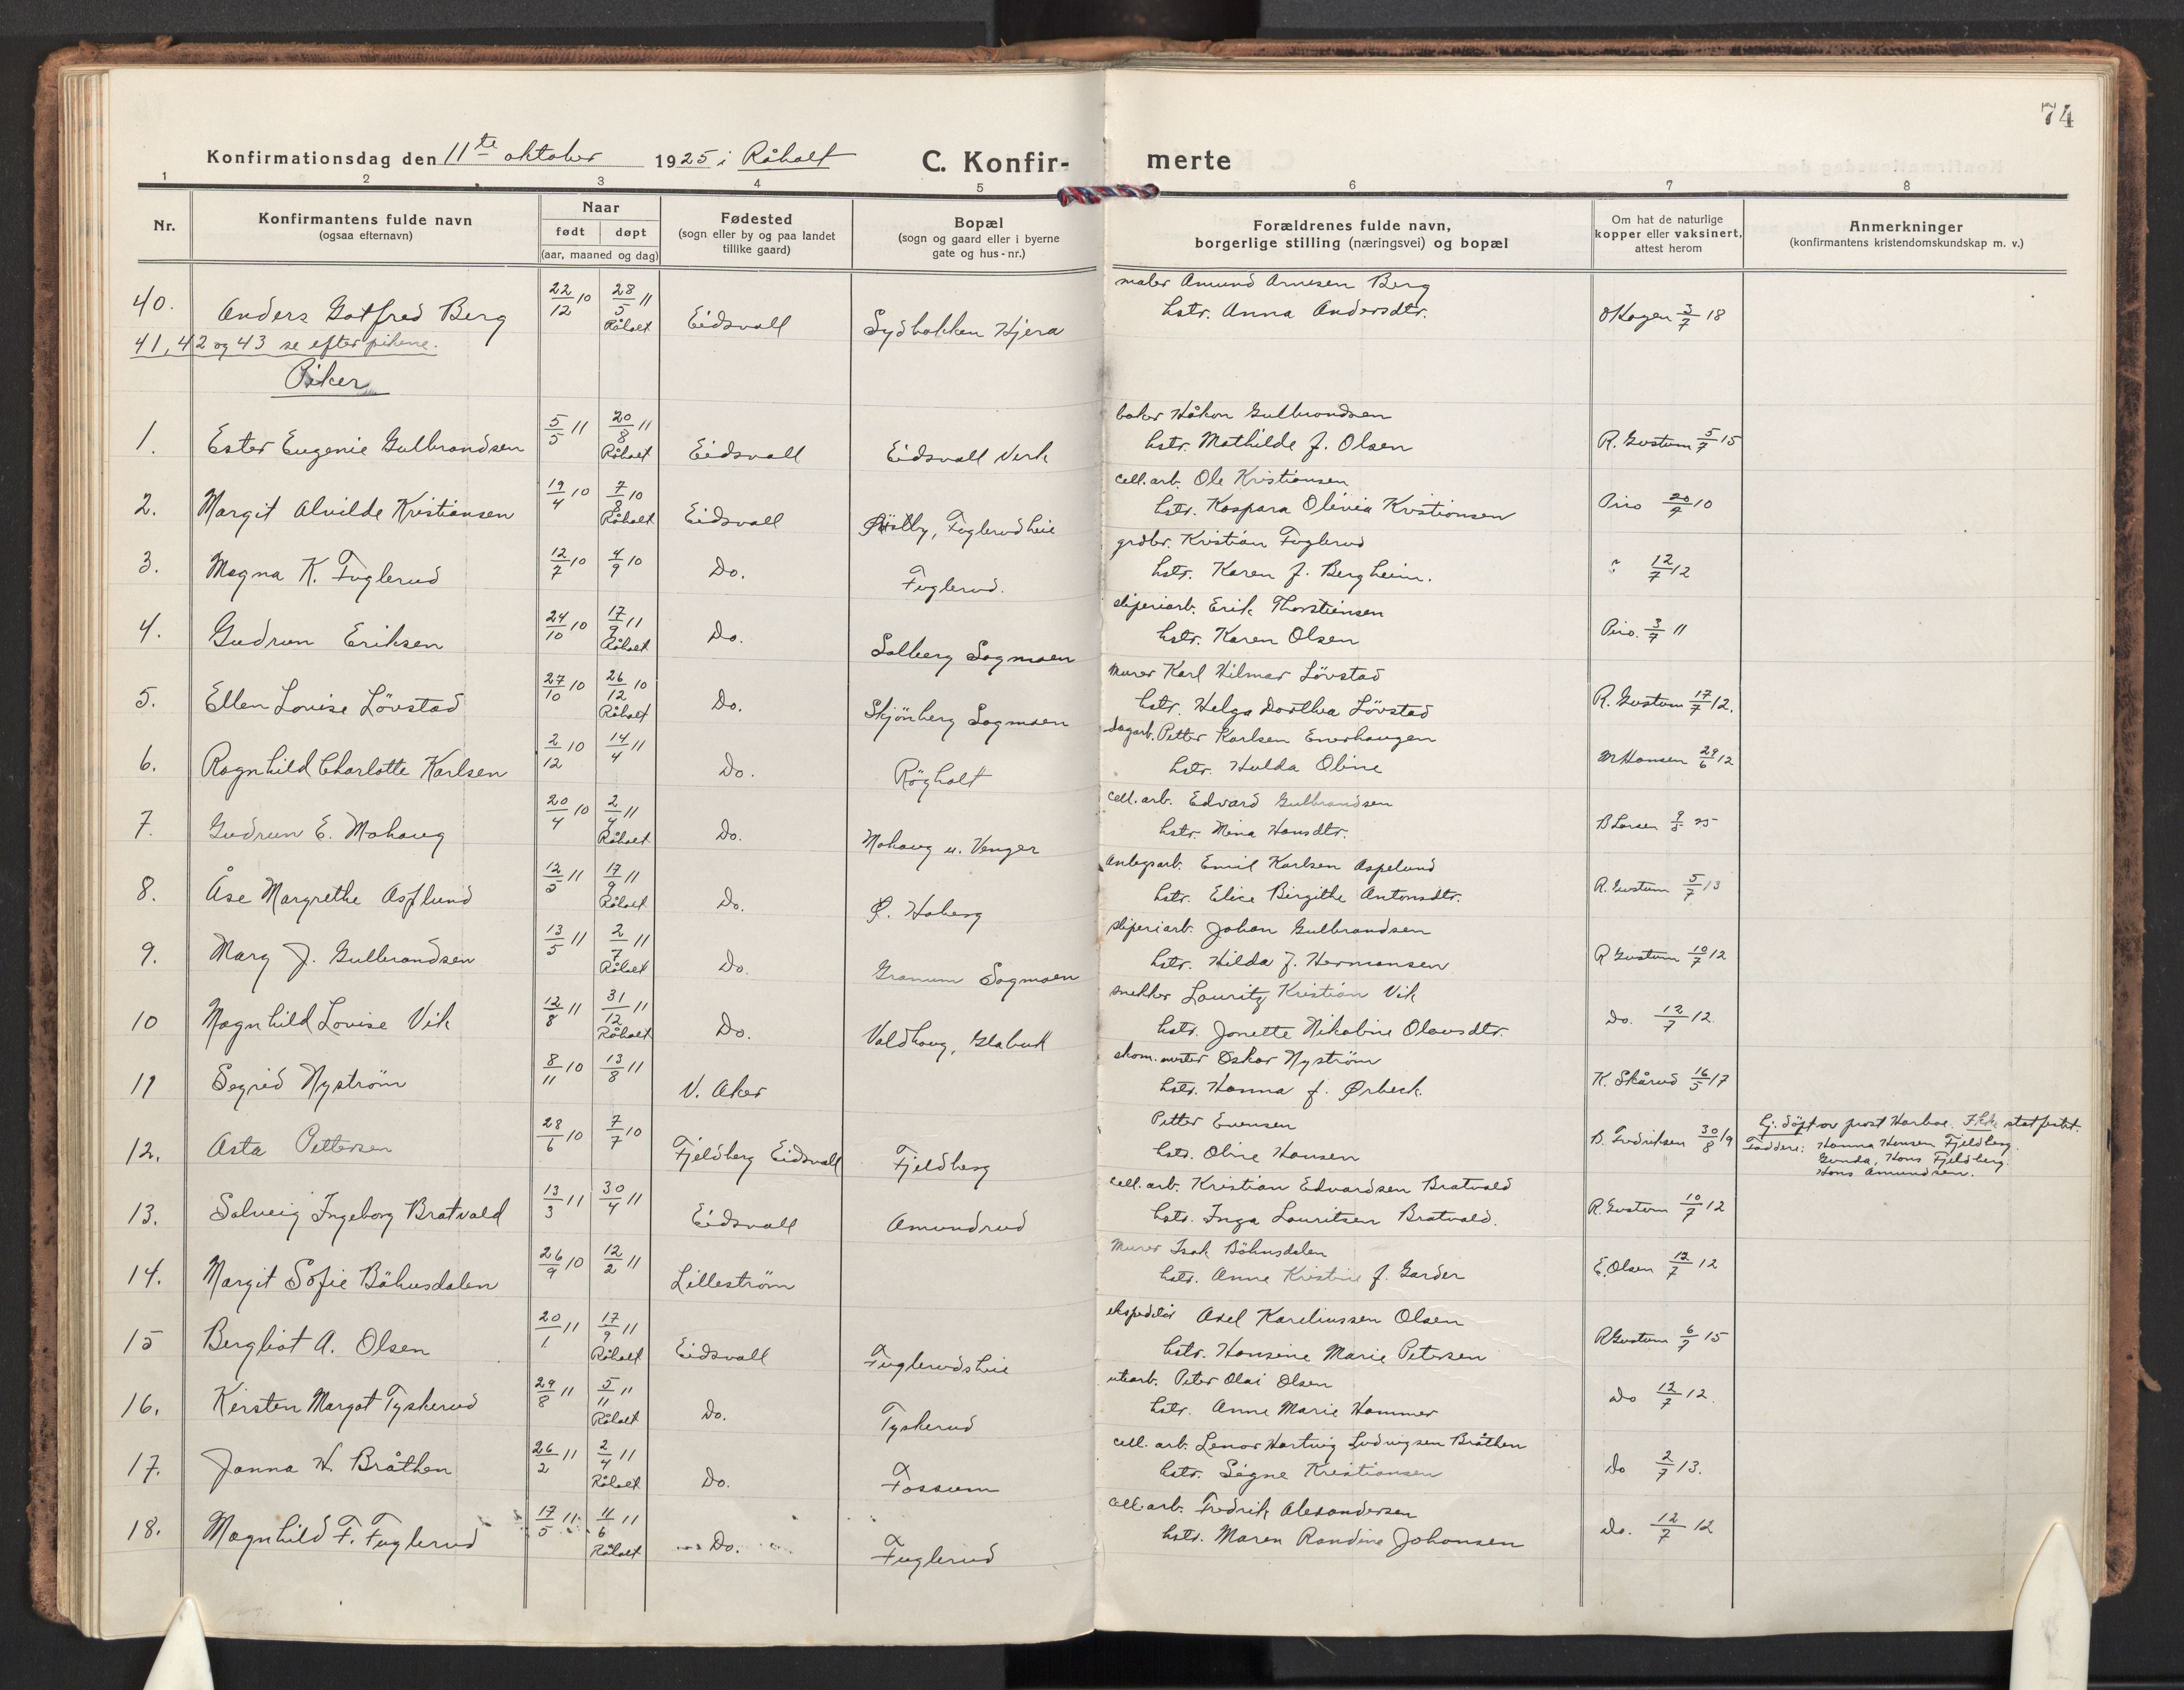 74
Konfirmationsdag den 11te oktober 1925 i Råholt C. Konfir- merte
1 2 3 4 5 6 7 8
Nr. Konfirmantens fulde navn (ogsaa efternavn) Naar født døpt (aar, maaned og dag) Fødested (sogn eller by og paa landet tillike gaard) Bopæl (sogn og gaard eller i byerne gate og hus-nr.) Forældrenes fulde navn, borgerlige stilling (næringsvei) og bopæl Om hat de naturlige kopper eller vaksinert, attest herom Anmerkninger (konfirmantens kristendomskundskap m. v.)
maler Amund Arnesen Berg
40. Anders Gotfred Berg 22/12 10 28/5 11 Råholt Eidsvall Sydbakken Hjera hstr. Anna Andersdtr. O Hagen 3/7 18
41, 42 og 43 se efter pikene.
Piker
baker Håkon Gulbrandsen
1. Ester Eugenie Gulbrandsen 5/5 11 20/8 11 Råholt Eidsvall Eidsvall Verk hstr. Mathilde f. Olsen R. Gustum 5/7 15
cell. arb. Ole Kristiansen
2. Margit Alvilde Kristiansen 19/4 10 7/8 10 Råholt Eidsvall Østby, Fuglerudheie hstr. Kaspara Olivia Kristiansen Piro 20/7 10
grdbr. Kristian Fuglerud
3. Magna K. Fuglerud 12/7 10 4/9 10 Do. Fuglerud. hstr. Karen f. Bergheim. " 12/7 12
sliperiarb. Erik Thorstensen
4. Gudrun Eriksen 24/10 10 17/9 11 Råholt Do. Solberg Sagmoen hstr. Karen Olsen Piro. 3/7 11
Murer Karl Hilmar Lövstad
5. Ellen Lovise Lövstad 27/10 10 26/12 10 Råholt Do. Skjönberg Sagmoen hstr. Helga Dorthea Lövstad R. Gustum 17/7 12.
dagarb. Petter Karlsen Enerhaugen
6. Ragnhild Charlotte Karlsen 2/12 10 14/4 11 Do. Rögholt hstr. Hulda Oline M Hansen 29/6 12
cell. arb. Edvard Gulbrandsen
7. Gudrun E. Mohaug 20/4 10 2/4 11 Råholt Do. Mohaug u. Venger hstr. Mina Hansdtr. B Larsen 9/5 25
Anlegsarb. Emil Karlsen Aspelund
8. Åse Margrethe Asplund 12/5 11 17/9 11 Råholt Do. Ø. Haberg hstr. Elise Birgithe Antonsdtr. R. Gustum 5/7 13
sliperiarb. Johan Gulbrandsen
9. Mary J. Gulbrandsen 13/5 11 2/7 11 Råholt Do. Granum Sagmoen hstr. Hilda f. Hermansen R Gustum 10/7 12
snekker Lauritz Kristian Vik
10 Magnhild Lovise Vik 12/8 11 31/12 11 Råholt Do. Valdhaug, hstr. Jonette Nikoline Olausdtr. Do. 12/7 12.
skom. mester Oskar Nyström
11 Segrid Nyström 8/11 10 13/8 11 V. Aker hstr. Hanna f. Ørbeck. K. Skårud 16/5 17
Petter Evensen
12. Asta Pettersen 28/6 10 7/7 10 Fjeldberg Eidsvall Fjeldberg hstr. Oline Hansen B. Fredriksen 30/8 19 hj. döpt av prost Harboe. Ikke statfestet. Faddere: Hanna Hansen Fjeldberg Gunda, Hans Fjeldberg. Hans Amundsen.
cell. arb. Kristian Edvardsen Bratvald
13. Solveig Ingeborg Bratvald 13/3 11 30/4 11 Eidsvall Amundrud hstr. Inga Lauritsen Bratvald. R. Gustum 10/7 12
Murer Isak Böhnsdalen
14. Margit Sofie Böhnsdalen 26/9 10 12/2 11 Lilleström hstr. Anne Kristine f. Garder E. Olsen 12/7 12
ekspeditör Axel Kareliussen Olsen
15 Bergliot A. Olsen 20/1 11 17/9 11 Råholt Eidsvall Fuglerudsheie hstr. Hansine Marie Petersen R Gustum 6/7 15
utearb. Peter Olai Olsen
16. Kirsten Margot Tyskerud 29/8 11 5/11 11 Råholt Do. Tyskerud hstr. Anne Marie Hammer Do 12/7 12.
cell. arb. Lenor Hartvig Ludvigsen Bråthen
17. Janna H. Bråthen 26/2 11 2/4 11 Råholt Do. Fossum hstr. Signe Kristiansen Do 2/7 13.
cell. arb. Fredrik Alexandersen
18. Magnhild F. Fuglerud 17/5 11 11/6 11 Råholt Do. Fuglerud hstr. Maren Randine Johansen Do. 12/7 12